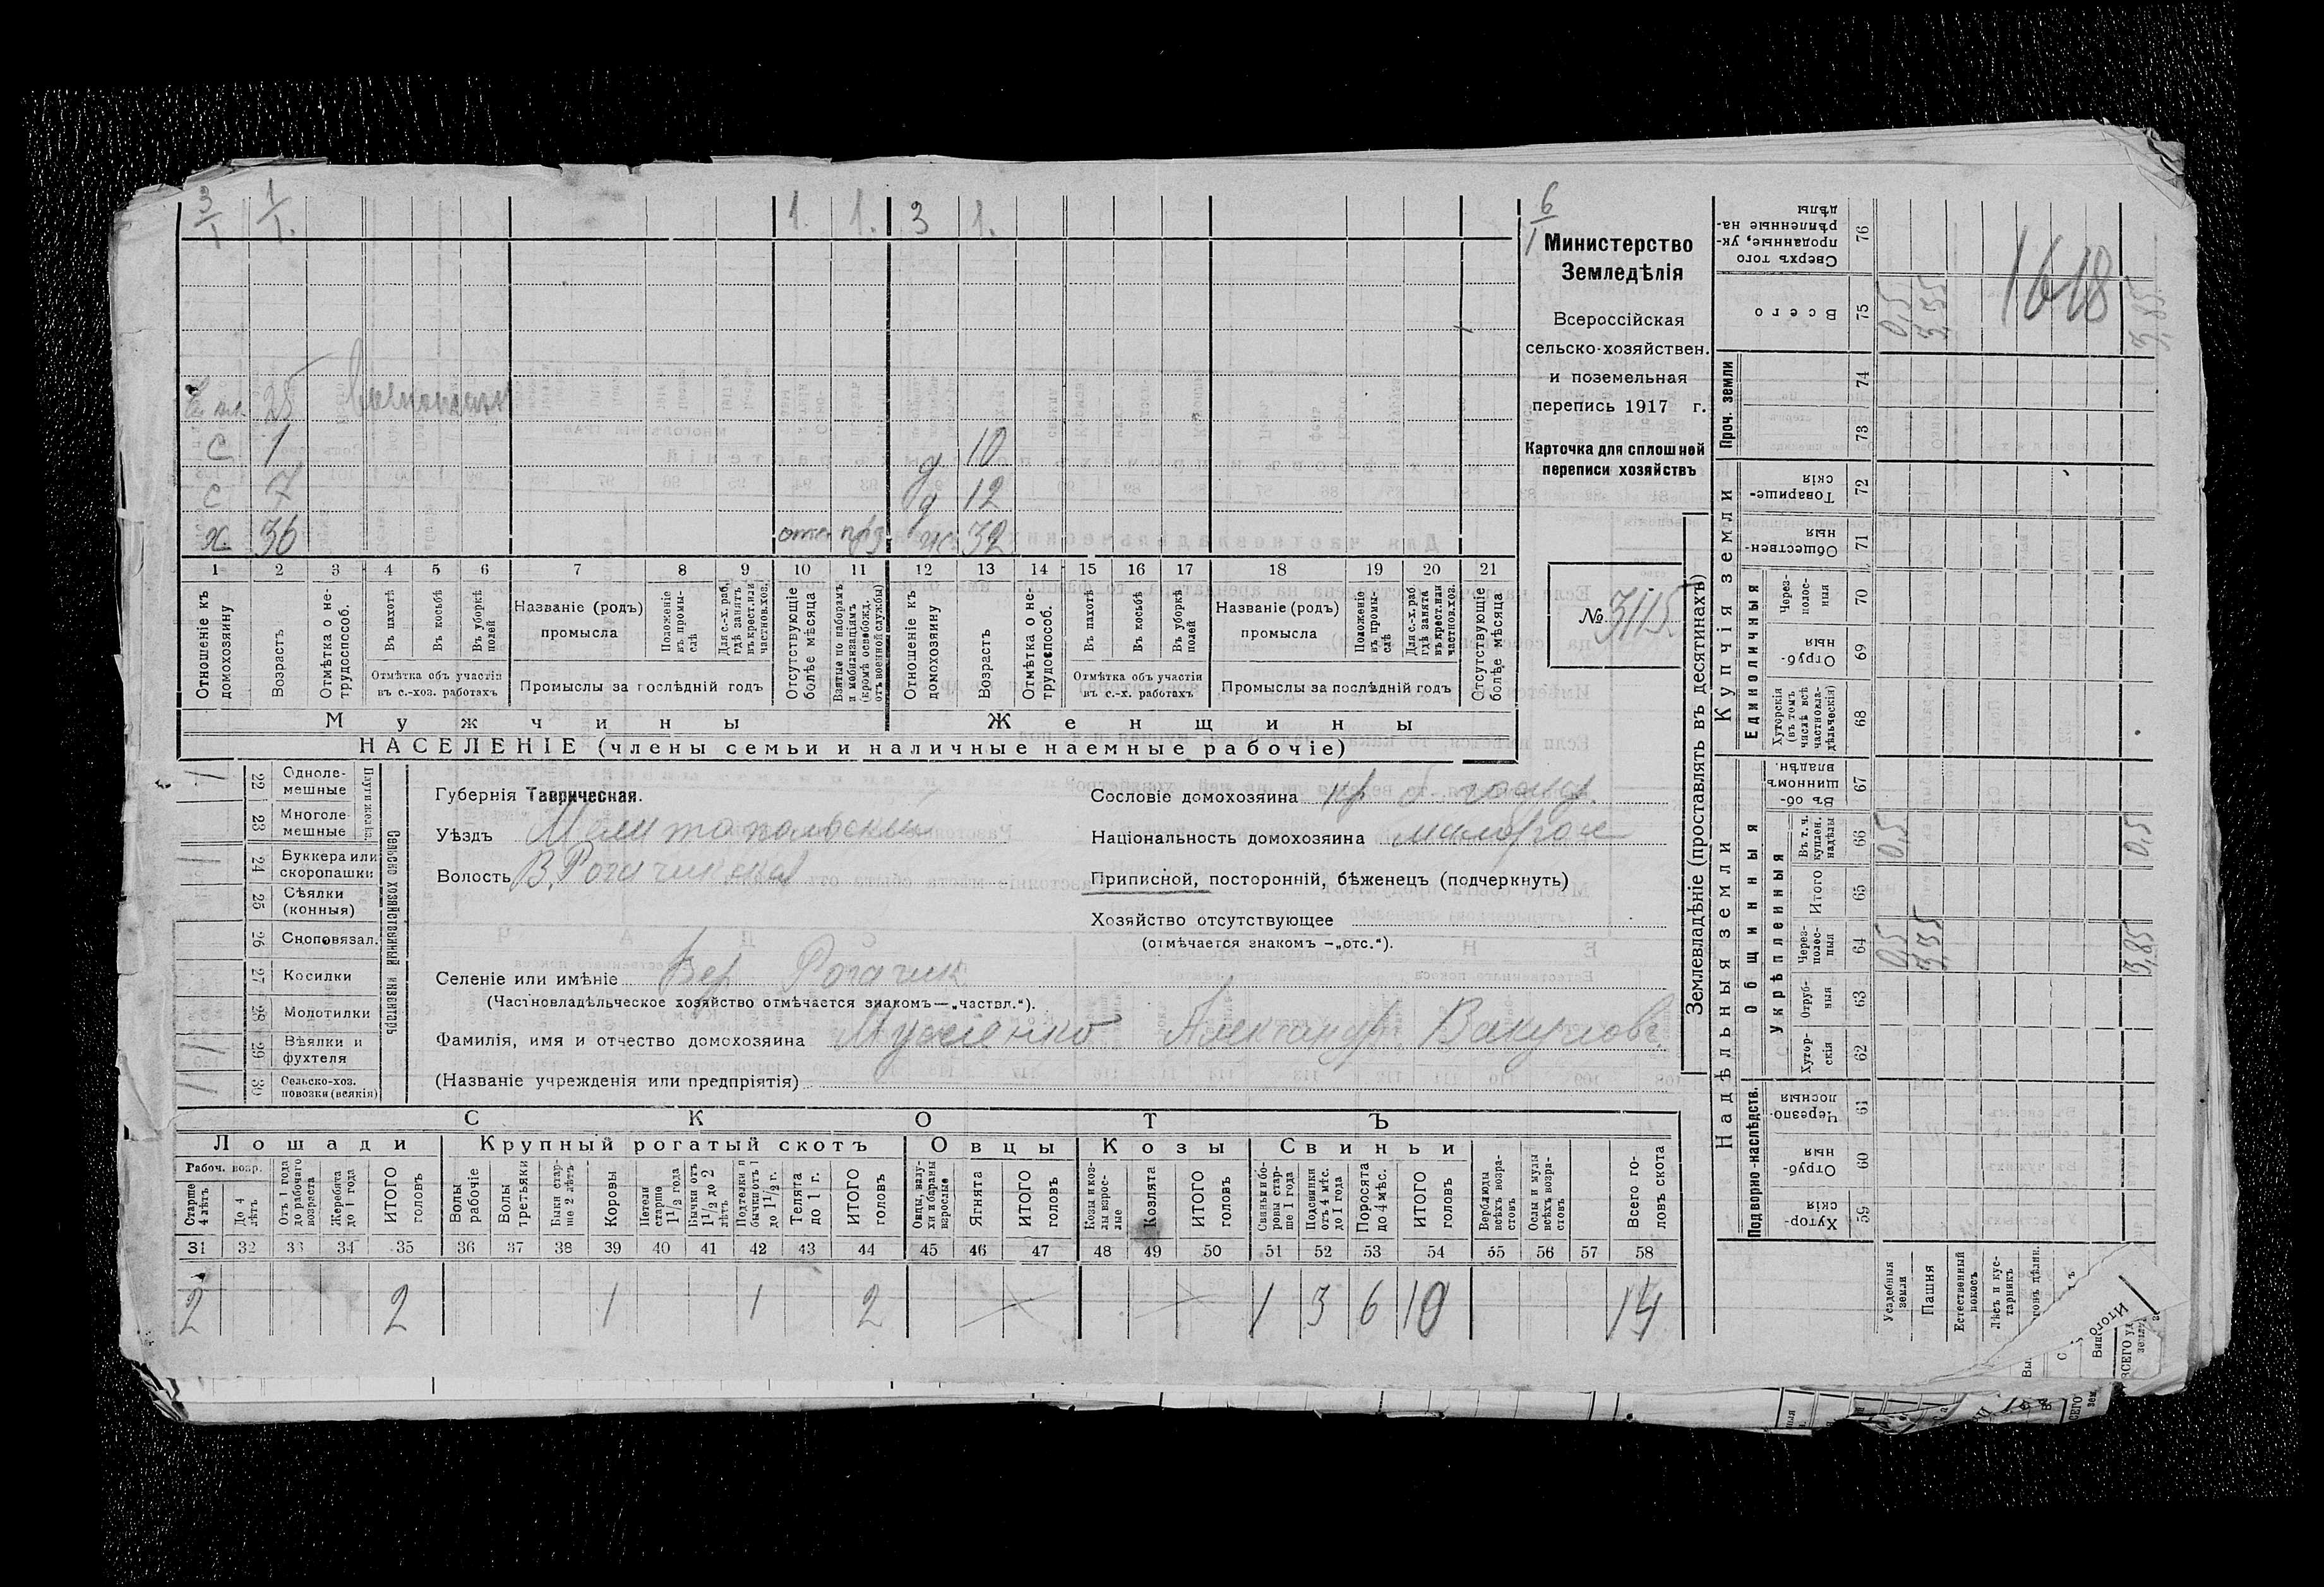 3/1 1/1. 1. 1. 3 1. 6/1
Министерство
Земледѣлія
Всероссійская
сельско-хозяйствен.
и поземельная
перепись 1917 г.
Карточка для сплошной
переписи хозяйствъ
№ 3115.
1618
25
С 1 д 10
С 7 д 12
х. 36 отс. ж. 32
1 2 3 4 5 6 7 8 9 10 11 12 13 14 15 16 17 18 19 20 21
Отношеніе къ домохозяину
Возрастъ
Отмѣтка о не-трудоспособ.
Въ пахотѣ
Въ косьбѣ
Въ уборкѣ полей
Отмѣтка объ участіи въ с.-хоз. работахъ
Названіе (родъ) промысла
Положеніе въ промы-слѣ
Для с.-х. раб. гдѣ занятъ въ крест. или частновл.хоз.
Промыслы за послѣдній годъ
Отсутствующіе болѣе мѣсяца
Взятые по наборамъ и мобилизаціямъ (кромѣ освобожд. отъ военной службы)
Отношеніе къ домохозяину
Возрастъ
Отмѣтка о не-трудоспособ.
Въ пахотѣ
Въ косьбѣ
Въ уборкѣ полей
Отмѣтка объ участіи въ с.-х. работахъ
Названіе (родъ) промысла
Положеніе въ промы-слѣ
Для с.-х. раб. гдѣ занята въ крест. или частновл.хоз.
Промыслы за послѣдній годъ
Отсутствующіе болѣе мѣсяца
Мужчины Женщины
НАСЕЛЕНІЕ (члены семьи и наличные наемные рабочіе)
Сельско хозяйственный инвентарь
1 22 Одноле-мешные
23 Многоле-мешные
1 24 Буккера или скоропашки
25 Сѣялки (конныя)
26 Сноповязал.
27 Косилки
28 Молотилки
1 29 Вѣялки и фухтеля
1 30 Сельско-хоз. повозки (всякія)
Губернія Таврическая.
Уѣздъ Мелитопольскій
Волость В. Рогачикская
Сословіе домохозяина кр. б. госуд.
Національность домохозяина малоросс
Приписной, посторонній, бѣженецъ (подчеркнуть)
Хозяйство отсутствующее
(отмѣчается знакомъ —„отс.“).
Селеніе или имѣніе Вер. Рогачик
(Частновладѣльческое хозяйство отмѣчается знакомъ—„частвл.“).
Фамилія, имя и отчество домохозяина Мусіенко Александр. Вакулов.
(Названіе учрежденія или предпріятія)
СКОТЪ
Лошади Крупный рогатый скотъ Овцы Козы Свиньи
Рабоч. возр.
Старше 4 лѣтъ
До 4 лѣтъ
Отъ 1 года до рабочаго возраста
Жеребята до 1 года
ИТОГО головъ
Волы рабочіе
Волы третьяки
Быки стар-ше 2 лѣтъ
Коровы
Нетели старше 1 1/2 года
Бычки отъ 1 1/2 до 2 лѣтъ
Подтелки и бычки отъ 1 до 1 1/2 г.
Телята до 1 г.
ИТОГО головъ
Овцы, валу-хи и бараны взрослые
Ягнята
ИТОГО головъ
Козы и коз-лы взрос-лые
Козлята
ИТОГО головъ
Свиньи и бо-ровы стар-ше 1 года
Подсвинки отъ 4 мѣс. до 1 года
Поросята до 4 мѣс.
ИТОГО головъ
Верблюды всѣхъ возра-стовъ
Ослы и мулы всѣхъ возра-стовъ
Всего го-ловъ скота
31 32 33 34 35 36 37 38 39 40 41 42 43 44 45 46 47 48 49 50 51 52 53 54 55 56 57 58
2 2 1 1 2 1 3 6 10 14
Землевладѣніе (проставлять въ десятинахъ)
Купчія земли
Проч. земли
Единоличныя
Надѣльныя земли
Общинныя
Укрѣпленныя
Подворно-наслѣдств.
Сверхъ того проданные, ук-рѣпленные на-дѣлы 76
Всего 75 0,5 3,35 3,85
74
73
Товарище-скія 72
Обществен-ныя 71
Через-полос-ныя 70
Отруб-ныя 69
Хуторскія (въ томъ числѣ всѣ частновла-дѣльческія) 68
Въ об-щинномъ владѣн. 67
Въ т. ч. куплен. надѣлы 66 0,5 0,5
Итого 65
Через-полос-ныя 64 0,5 3,35 3,85
Отруб-ныя 63
Хутор-скія 62
Черезпо-лосныя 61
Отруб-ныя 60
Хутор-скія 59
Усадебныя земли
Пашня
Естественный покосъ
Лѣсъ и кус-тарникъ
Итого